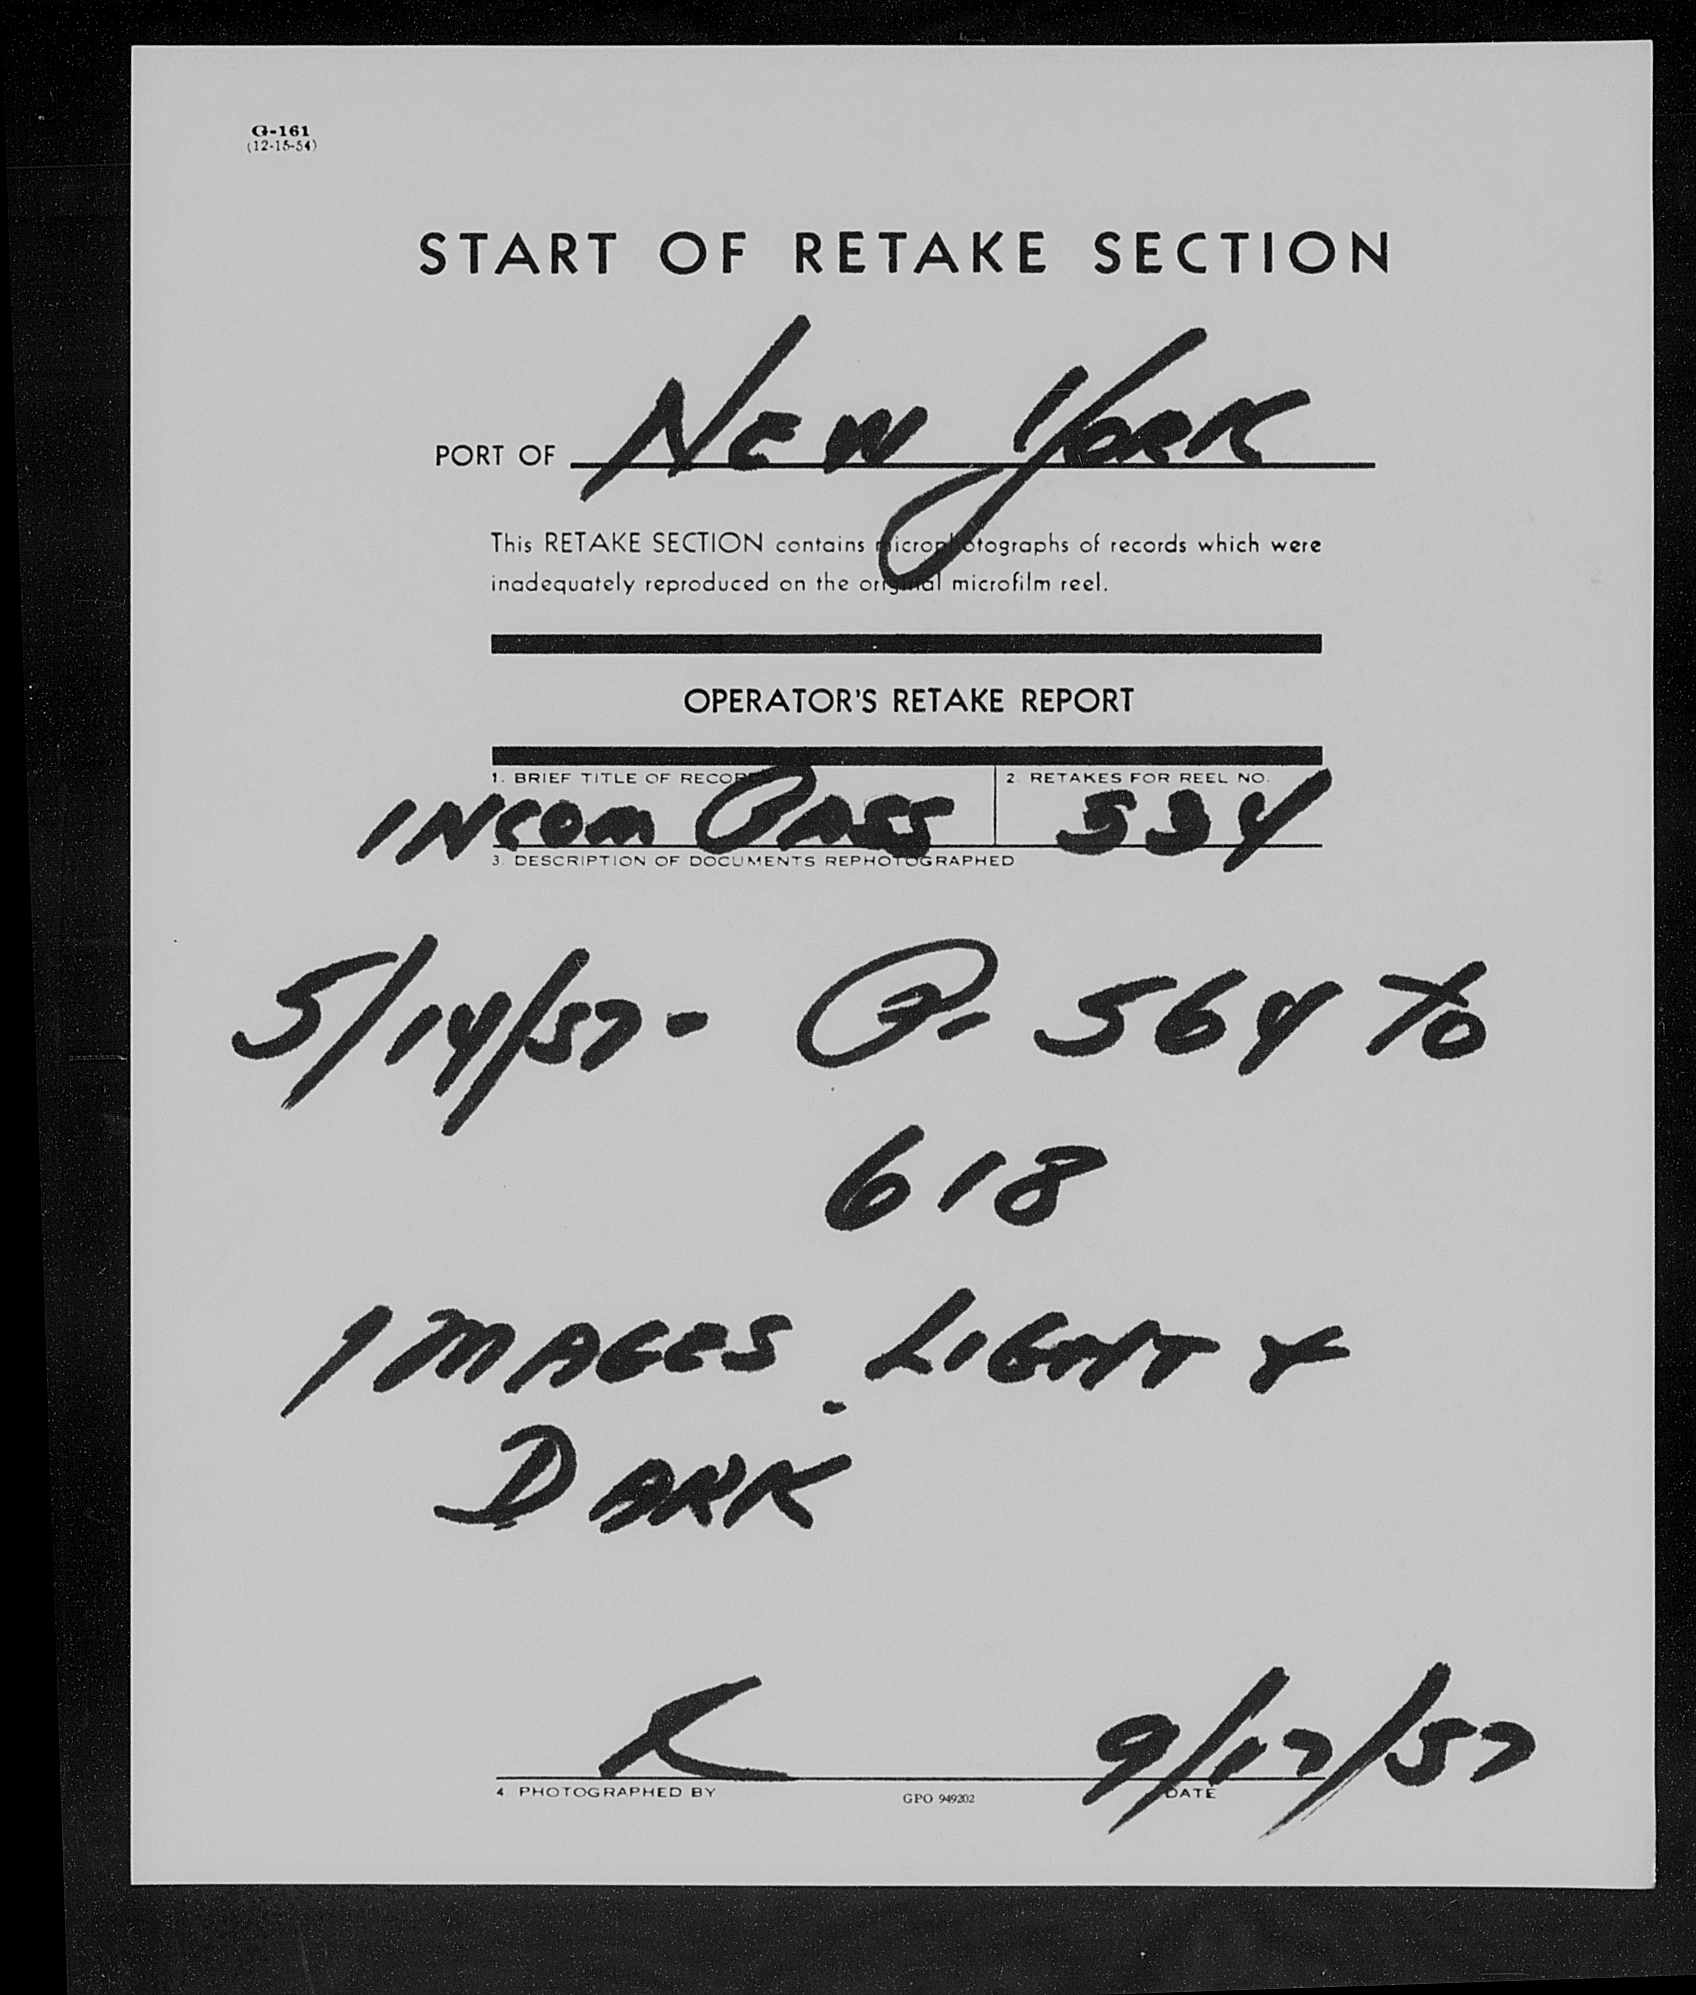 G-161
(12-15-54)
START OF RETAKE SECTION
PORT OF NEW YORK
This RETAKE SECTION contains microphotographs of records which were
inadequately reproduced on the original microfilm reel.
OPERATOR'S RETAKE REPORT
1. BRIEF TITLE OF RECORDS 2. RETAKES FOR REEL NO.
INCOM PASS 534
3. DESCRIPTION OF DOCUMENTS REPHOTOGRAPHED
5/14/57 - P. 564 To
618
IMAGES. LIGHT &
DARK
K 9/17/57
4 PHOTOGRAPHED BY GPO 949202 DATE